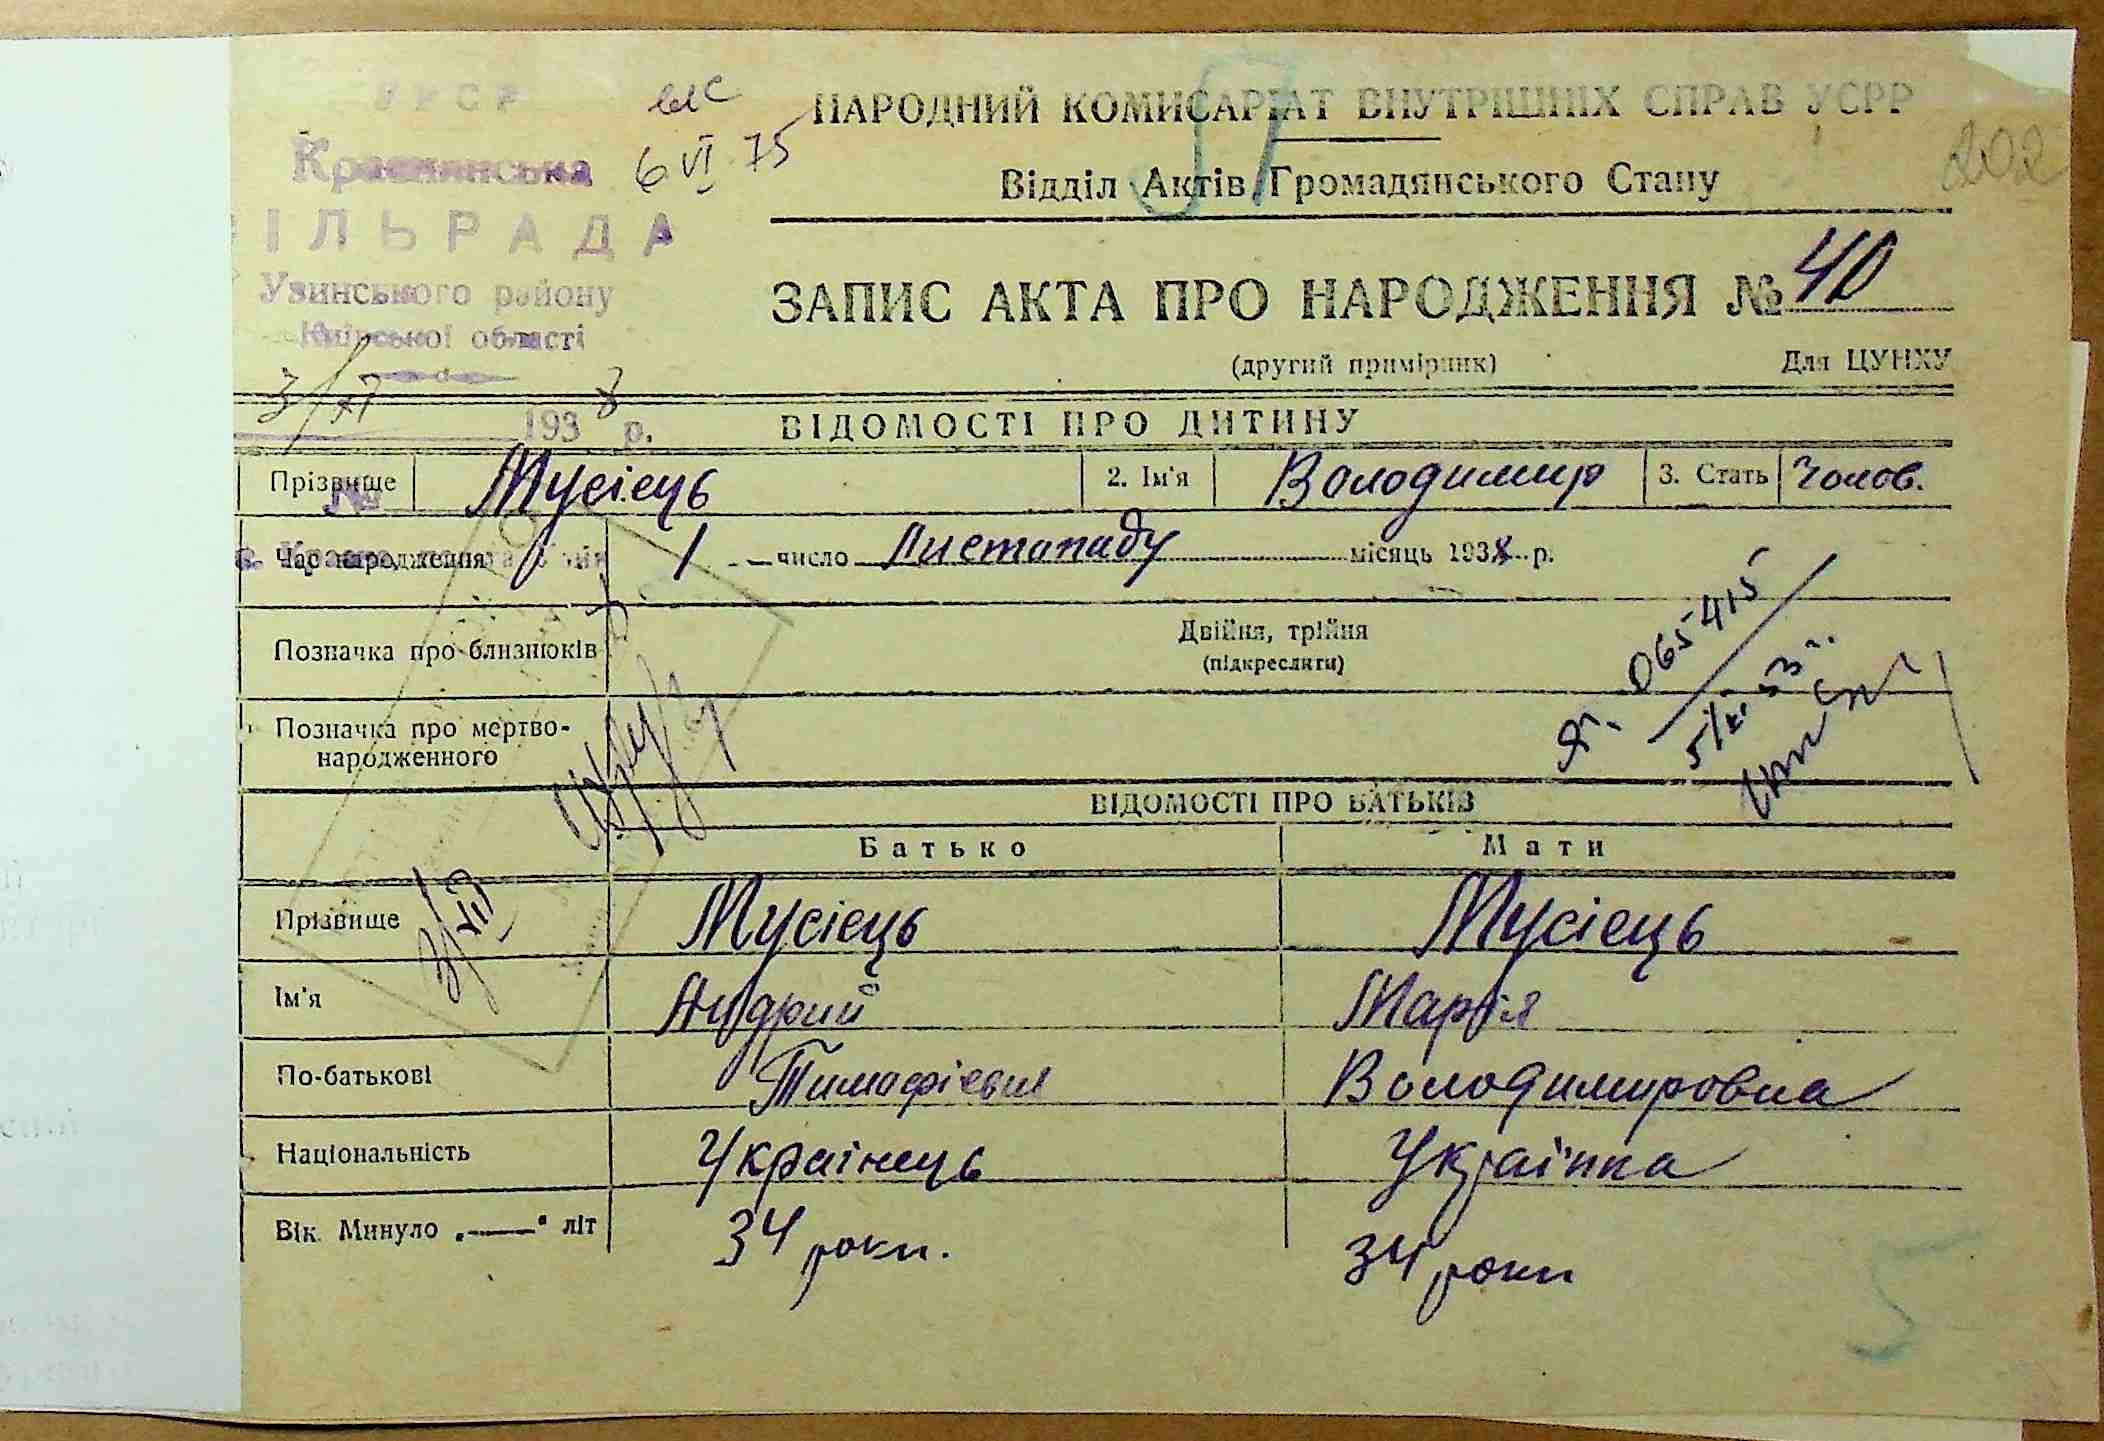 УРСР
вис
6 VI 75
НАРОДНИЙ КОМИСАРІАТ ВНУТРІШНІХ СПРАВ УСРР
Відділ Актів Громадянського Стану
57
202
Краснянська
СІЛЬРАДА
Узинського району
Київської області
3/XI 1938 р.
№
ЗАПИС АКТА ПРО НАРОДЖЕННЯ № 40
(другий примірник) Для ЦУНХУ
ВІДОМОСТІ ПРО ДИТИНУ
Прізвище Мусіець 2. Ім'я Володимир 3. Стать Чолов.
Час народження 1 число Листопаду місяць 1938 р.
Позначка про близнюків Двійня, трійня
(підкреслити)
065415
Позначка про мертво-
народженного
ВІДОМОСТІ ПРО БАТЬКІВ
Батько Мати
Прізвище Мусіець Мусіець
Ім'я Андрий Марія
По-батькові Тимофієвич Володимировна
Національність Українець Українка
Вік. Минуло „——" літ 34 роки. 34 роки
5